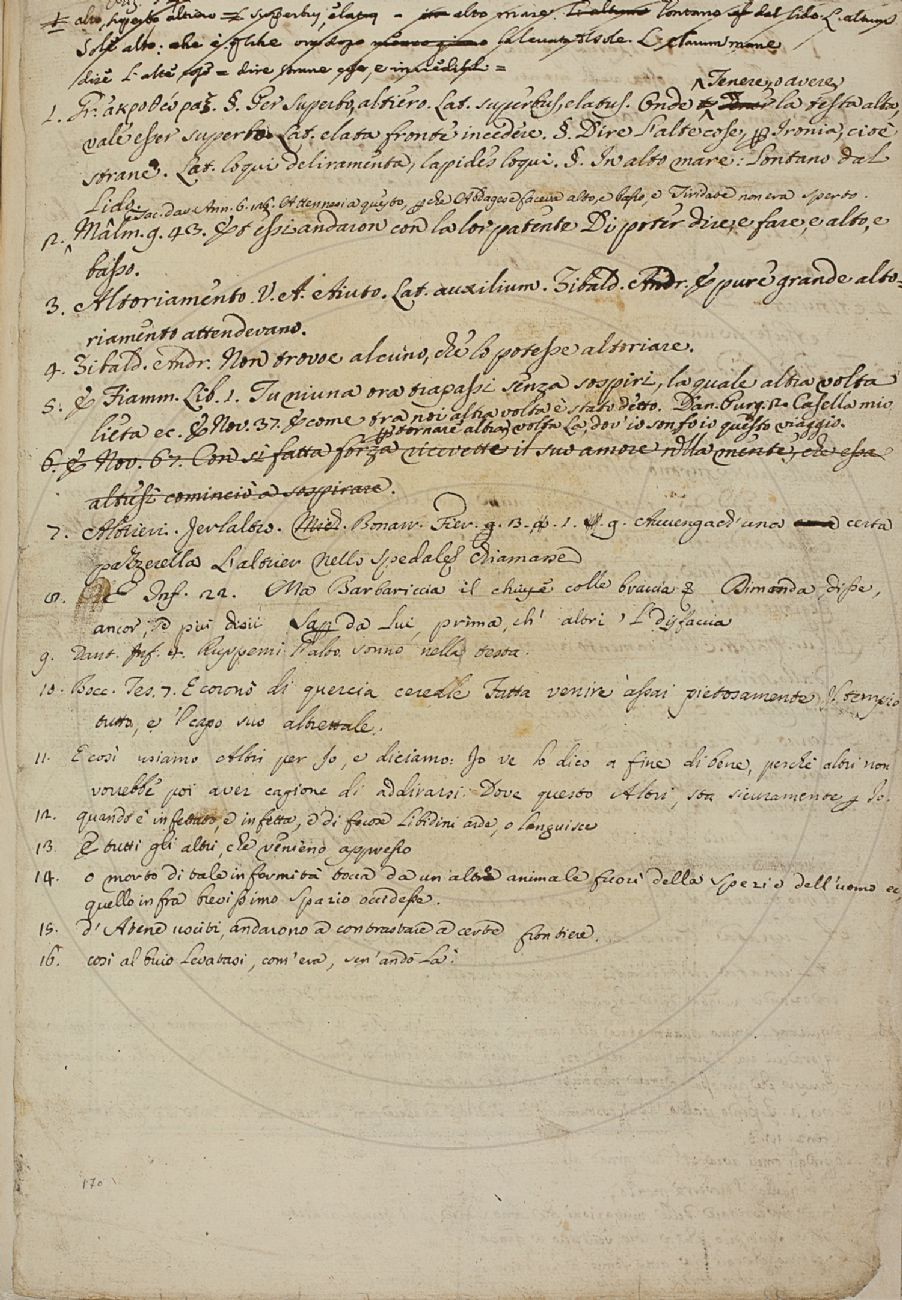 1. alto, superbo altiero = superbus, elatus - alto mare. lontano dal lido. L. altum
Sole alto: che è qualche ora dopo la levata del sole. L. clarum mane
dire l'alte cose = dire strane cose, e incredibili =
Tenere, o avere
1. Gr. §. Per superbo, altiero. Lat. superbus, elatus. Onde la testa alta,
vale esser superbo. Lat. elata fronte incedere. §. Dire l'alte cose, Ironia, cioè
strane. Lat. loqui deliramenta, lapides loqui. §. In alto mare: Lontano dal
Lido.
Tac. Dav. Ann. 6. Attenevasi a questo, che Abdagese faceva alto, e basso, e Tiridate non era sperto
2. Malm. g. 43. essi andaron con la lor patente Di poter dire, e fare, e alto, e
basso.
3. Altoriamento. V. A. Aiuto. Lat. auxilium. Zibald. Andr. E pure grande alto-
riamento attendevano.
4. Zibald. Andr. Non trovoe alcuno, che lo potesse altoriare.
5. Fiamm. Lib. 1. Tu niuna ora trapassi senza sospiri, la quale altra volta
lieta ec. Nov. 37. E come tra noi altra volta è stato detto. Dan. Purg. 2. Casella mio
per tornare altra volta Là, dov'io son fo io questo viaggio.
6. Nov. 67. Con sì fatta forza ricevette il suo amore nella mente, che essa
altresì cominciò a sospirare.
7. Altrieri. Jerlaltro. Bonarr. Fier. g. 3. 1. 9. Avvengach'una certa
pazzerella L'altrier nello spedale chiamasse
8. Inf. 22. Ma Barbariccia il chiuse colle braccia Dimanda, disse,
ancor, se più disii Saper da lui, prima, ch' altri 'l disfaccia
9. Dant. Inf. 4. Ruppemi l'alto sonno nella testa.
10. Bocc. Tes. 7. E coronò di quercia cereale Tutta venire assai pietosamente, Il tempio
tutto, e 'l capo suo altrettale.
11. E così usiamo Altri per Io, e diciamo: Io ve lo dico a fine di bene, perchè altri non
vorrebbe poi aver cagione di addirarsi. Dove questo Altri, sta sicuramente p Io.
12. quando è infettato, e infetta, e di focose libidini arde, o languisce
13. E tutti gli altri, che venieno appresso
14. o morto di tale infermità tocca da un altro animale fuori della spezie dell'uomo ec.
quello infra brevissimo spazio occidesse.
15. d'Atene usciti, andarono a contrastare a certe frontiere.
16. così al buio levatasi, com'era, sen'andò là.
170